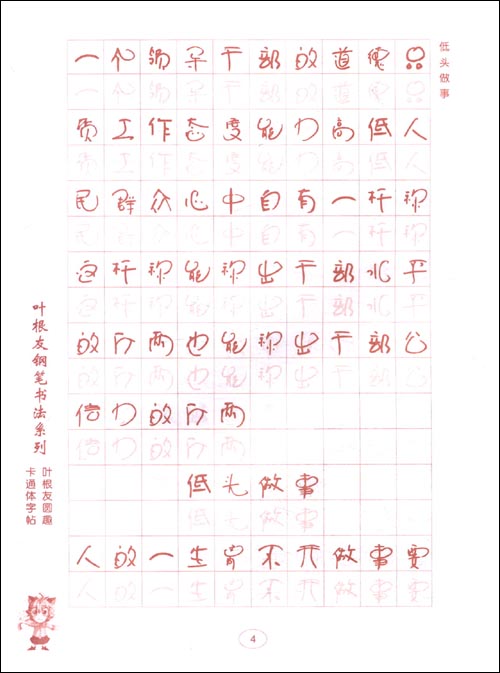 低头做事
一个领导干部的道德品
一个领导干部的道德品
质工作态度能力高低人
质工作态度能力高低人
民群众心中自有一杆秤
民群众心中自有一杆秤
这杆秤能称出干部水平
这杆秤能称出干部水平
的斤两也能称出干部公
的斤两也能称出干部公
信力的斤两
信力的斤两
低头做事
低头做事
人的一生离不开做事要
人的一生离不开做事要
叶根友钢笔书法系列
叶根友圆趣
卡通体字帖
4